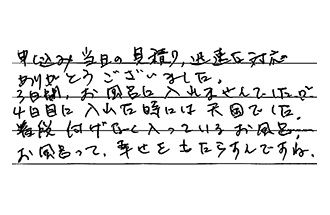 申し込み当日の見積り、迅速な対応
ありがとうございました。
3日間、お風呂に入れませんでしたが
4日目に入れた時には天国でした。
普段何げなく入っているお風呂、
お風呂って、幸せをもたらすんですね。